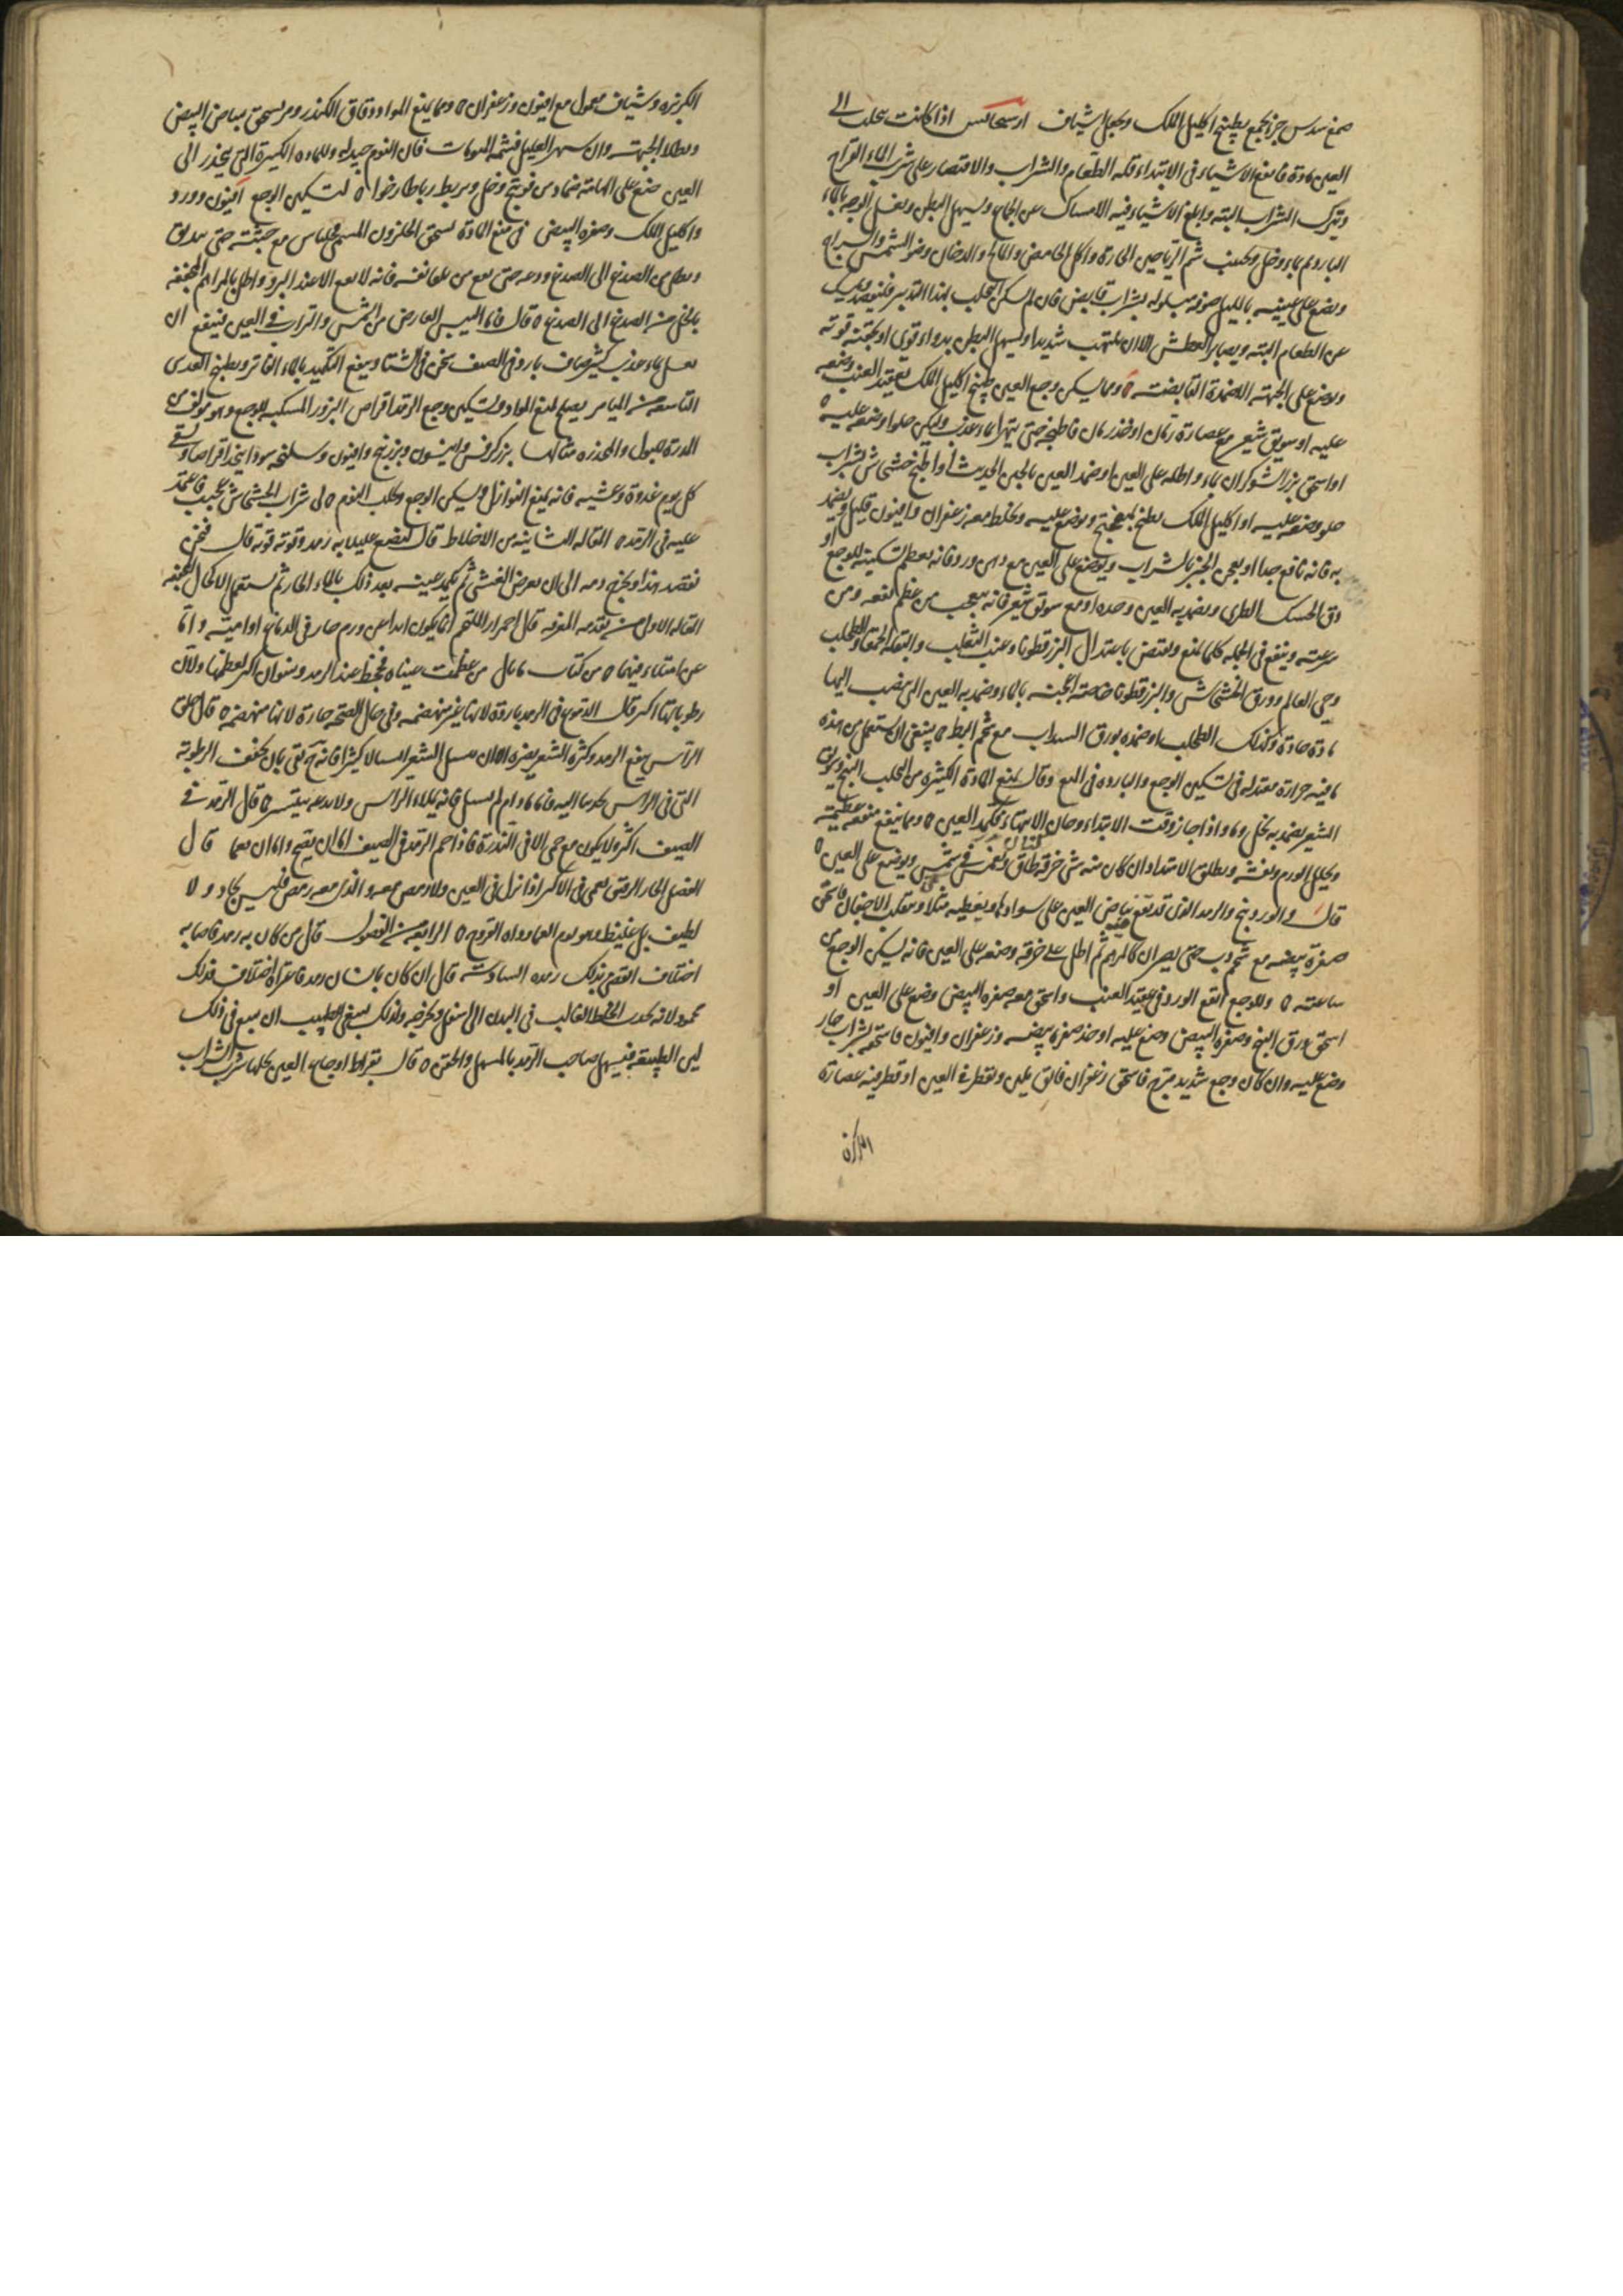 صمغ سدس جز يجمع بطبيخ اكليل الملك ويجعل شياف ارسجاس اذا كانت تتحلب الى
العين مادة فانفع الاشياء في الابتداء قلة الطعام والشراب والاقتصار على شرب الماء القراح
وترك الشراب البتة وابلغ الاشياء فيه الامساك عن الجماع ويسهل البطن ويغسل الوجه بالماء
البارد ثم بماء وخل ويجتنب شم الرياحين الحارة واكل الحامض والمالح والدخان وضوء الشمس والسراج
ويضع على عينيه بالليل صوفة مبلوله بشراب قابض فان لم يسكن التحلب بهذا التدبير فليقصد وليمسك
عن الطعام البتة ويصابر العطش الا ان يلتهب شديدا ويسهل البطن بدواء قوي او بحقنة قوية
ويوضع على الجبهة الاضمدة القابضة ٥ ومما يسكن وجع العين طبيخ اكليل الملك بعقيد العنب وضعه
عليه او سويق شعير مع عصارة رمان او خذ رمان فاطبخه حتى يتهرا بماء عذب وليكن حلوا وضعه عليه ٥
او اسحق بزر الشوكران بماء واطله على العين او ضمد العين بالجبن الحديث او اطبخ خشخاش بشراب
حلو وضعه عليه او اكليل الملك يطبخ بميفختج ويوضع عليه ويخلط معه زعفران وافيون قليل ويضمد
به فانه نافع جدا او يعجن الخبز بالشراب ويوضع على العين مع دهن ورد فانه يعظم تسكينه للوجع او
دق الحسك الطري ويضمد به العين وحده او مع سويق شعير فانه يتعجب من عظم نفعه ومن
سرعته وينفع في الجملة كلما يمنع ويقبض باعتدال البزرقطونا وعنب الثعلب والبقلة الحمقا والطحلب
وحي العالم وورق الخشخاش والبزرقطونا خاصة اعجنه بالماء وضمد به العين التي ينصب اليها
مادة حادة وكذلك الطحلب او ضمده بورق السداب مع شحم البط ٥ ينبغي ان يستعمل من هذه
ما فيه حرارة معتدلة في تسكين الوجع والباردة في المنع وقال يمنع المادة الكثيرة من التحلب البنج وسويق
الشعير يضمد به بخل وماء واذا جاز وقت الابتداء وحان الانتهاء فكمد العين ٥ ومما ينفع منفعة عظيمة
ويحلل الورم ويفشه ويطلق الامتداد ان كان منه شى خرقة كتان طاق وتغمس في شمس ويوضع على العين ٥
قال والوردينج والرمد الذي قد يقع بياض العين على سوادها ويغطيه مثلا وينقلب الاجفان فاسحق
صفرة بيضة مع شحم دب حتى يصير ان كالمرهم ثم اطل على خرقة وضعه على العين فانه يسكن الوجع من
ساعته ٥ وللوجع انقع الورد في عقيد العنب واسحق معه صفرة البيض وضع على العين او
اسحق ورق البنج وصفرة البيض وضع عليه او خذ صفرة بيضة وزعفران وافيون فاسحقه بشراب حار
وضع عليه وان كان وجع شديد مبرح فاسحق زعفران فائق بلبن وتقطر في العين او قطر فيه عصارة
الكزبرة
الكزبرة وشياف معمول مع افيون وزعفران ٥ ومما يمنع المواد دقاق الكندر ومر يسحق ببياض البيض
ويطلا الجبهة وان سهر العليل فشمه المنومات فان النوم جيد له وللمادة الكثيرة التي ينحدر الى
العين ضع على الهامة ضماد من فوتنج وخل ويربط رباطا رخوا ٥ لتسكين الوجع افيون وورد
واكليل الملك وصفرة البيض في منع المادة يسحق الحلزون المسمى فحلياس مع جثته حتى يدبق
ويطلى من الصدغ الى الصدغ ودعه حتى يقع من تلقا نفسه فانه لا يقع الا عند البرؤ واطل بالمراهم المجففة
بالخل من الصدغ الى الصدغ ٥ قال فاما اليبس العارض من الشمس والتراب في العين فينفع ان
يغسل بماء عذب كثير صاف بارد في الصيف سخن في الشتا وينفع التكميد بالماء الفاتر وبطبيخ العدس
التاسعة من الميامر يصلح لمنع المواد وتسكين وجع الرمد اقراص البزور المسكنة للوجع وهو مولف من
المدرة للبول والمخدرة مثالها بزر كرفس وانيسون وبزر بنج وافيون وسليخة سودا يتخذ اقراصا وتسقى
كل يوم غدوة وعشية فانه يمنع النوازل ويسكن الوجع ويجلب النوم ٥ لى شراب الخشخاش عجيب فاعتمد
عليه في الرمد ٥ المقالة الثانية من الاخلاط قال لنضع عليلا به رمد وقوته قوية قال فنحن
نفصد هذا ويخرج دمه الى ان يعرض الغشي ثم يكمد عينيه بعد ذلك بالماء الحار ثم يستعمل الاكحال المجففة
المقالة الاولى من تقدمة المعرفة قال احمرار الملتحم انما يكون اما عن ورم حار في الدماغ او اميه واما
عن امتلاء فيهما ٥ من كتاب ما بال من عظمت عيناه يجحظ عند الرمد وينتوان اكثر لعظمها ولان
رطوباتها اكثر قال الدموع في الرمد باردة لانها غير منهضمة وفي حال الصحة حارة لانها منهضمة ٥ قال حلق
الراس ينفع الرمد وكثرة الشعر يضره الا ان يسبل الشعر اسبالا كثيرا فانه نقي بان يجفف الرطوبة
التي في الراس بجذبها اليه فاما ما دام لم يسبل فانه يملاء الراس ولا يدعه يتنفس ٥ قال الرمد في
الصيف اكثر ولا يكون مع حمى الا في الندرة فاذا حم الرمد في الصيف اما ان يقيح واما ان يعما قال
الفضل الحار الرقيق يعمى في الاكثر اذا نزل في العين ولا رمص معه والذي معه رمص فليس بحاد ولا
لطيف بل غليظ وهو يؤمن العما ودواء القروح ٥ الرابعة من الفصول قال من كان به رمد فاصابه
اختلاف انقضى بذلك رمده السادسة قال ان كان بانسان رمد فاعتراه اختلاف فذلك
محمود لانه يجذب الخلط الغالب في البدن الى اسفل ويخرجه ولذلك ينبغي للطبيب ان يتبع في ذلك
لين الطبيعة فيسهل صاحب الرمد بالمسهل والحقن ٥ قال بقراط اوجاع العين يحلها شرب الشراب